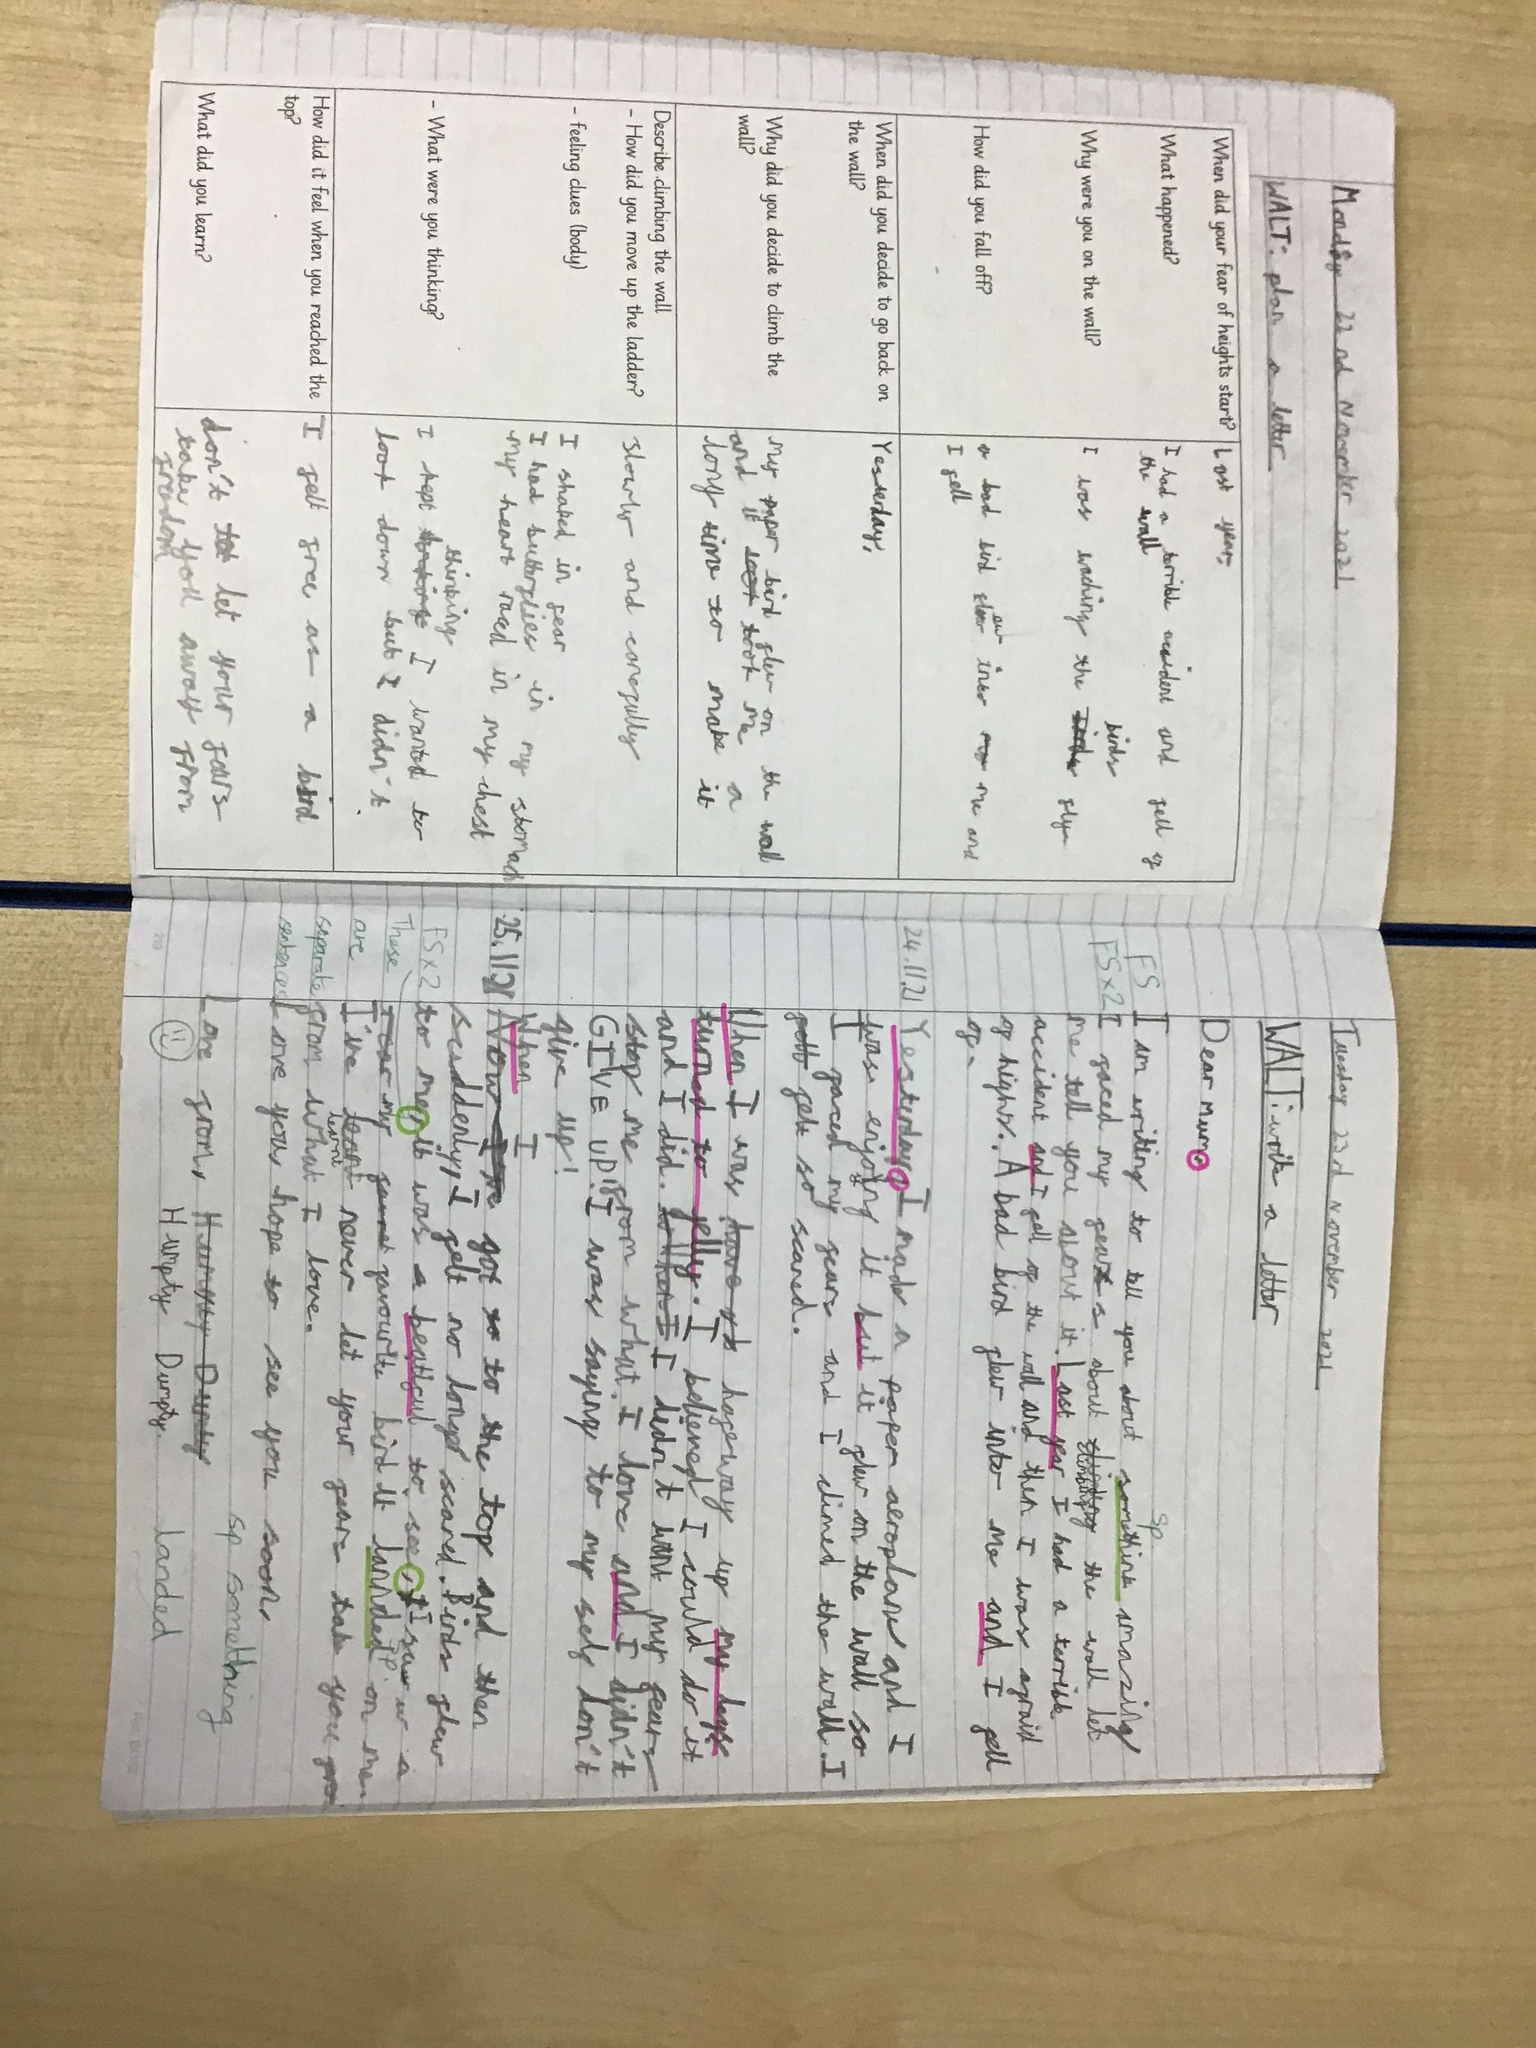 Monday 22nd November 2021
WALT: plan a letter
When did your fear of heights start? Last year,
What happened? I had a terrible accident and fell of
the wall
Why were you on the wall? I was waching the birds fly
How did you fall off? a bad bird flew inter me and
I fell
When did you decide to go back on
the wall? Yesterday,
Why did you decide to climb the
wall? My paper bird flew on the wall
and it took me a
long time to make it
Describe climbing the wall
- How did you move up the ladder? Slowly and carefully
- Feeling clues (body) I shaked in fear
I had butterflies in my stomach
my heart raced in my chest
- What were you thinking? I kept thinking I wanted to
look down but I didn't.
How did it feel when you reached the
top? I felt free as a bird
What did you learn? don't let your fears
take you away from
freedom
Tuesday 23rd November 2021
WALT: write a letter
Dear mum,
FS I am writing to tell you about somethink amazing
Sp
FSx2 I faced my fears about climbing the wall let
me tell you about it. Last year I had a terrible
accident and I fell of the wall and then I was afraid
of highs. A bad bird flew inter me and I fell
of.
24.11.21 Yesterday, I made a paper aeroplane and I
was enjoying it but it flew on the wall so
I faced my fears and I climed the wall. I
felt so scared.
When I was hafeway up my legs
turned to jelly. I believed I could do it
and I did. I didn't want my fears
stop me from what I love and I didn't
GIVE UP! I was saying to my self don't
give up!
25.11.21 When I got to the top and then
suddenly, I felt no longer scared. Birds flew
FSx2 to me it was a beatful to see. I saw a
These are separate sentences
my favourite bird it landed on me.
Sp
I've learnt never let your fears take you
from what I love.
Love you, hope to see you soon.
Love from, Humpty Dumpty.
sp something
landed